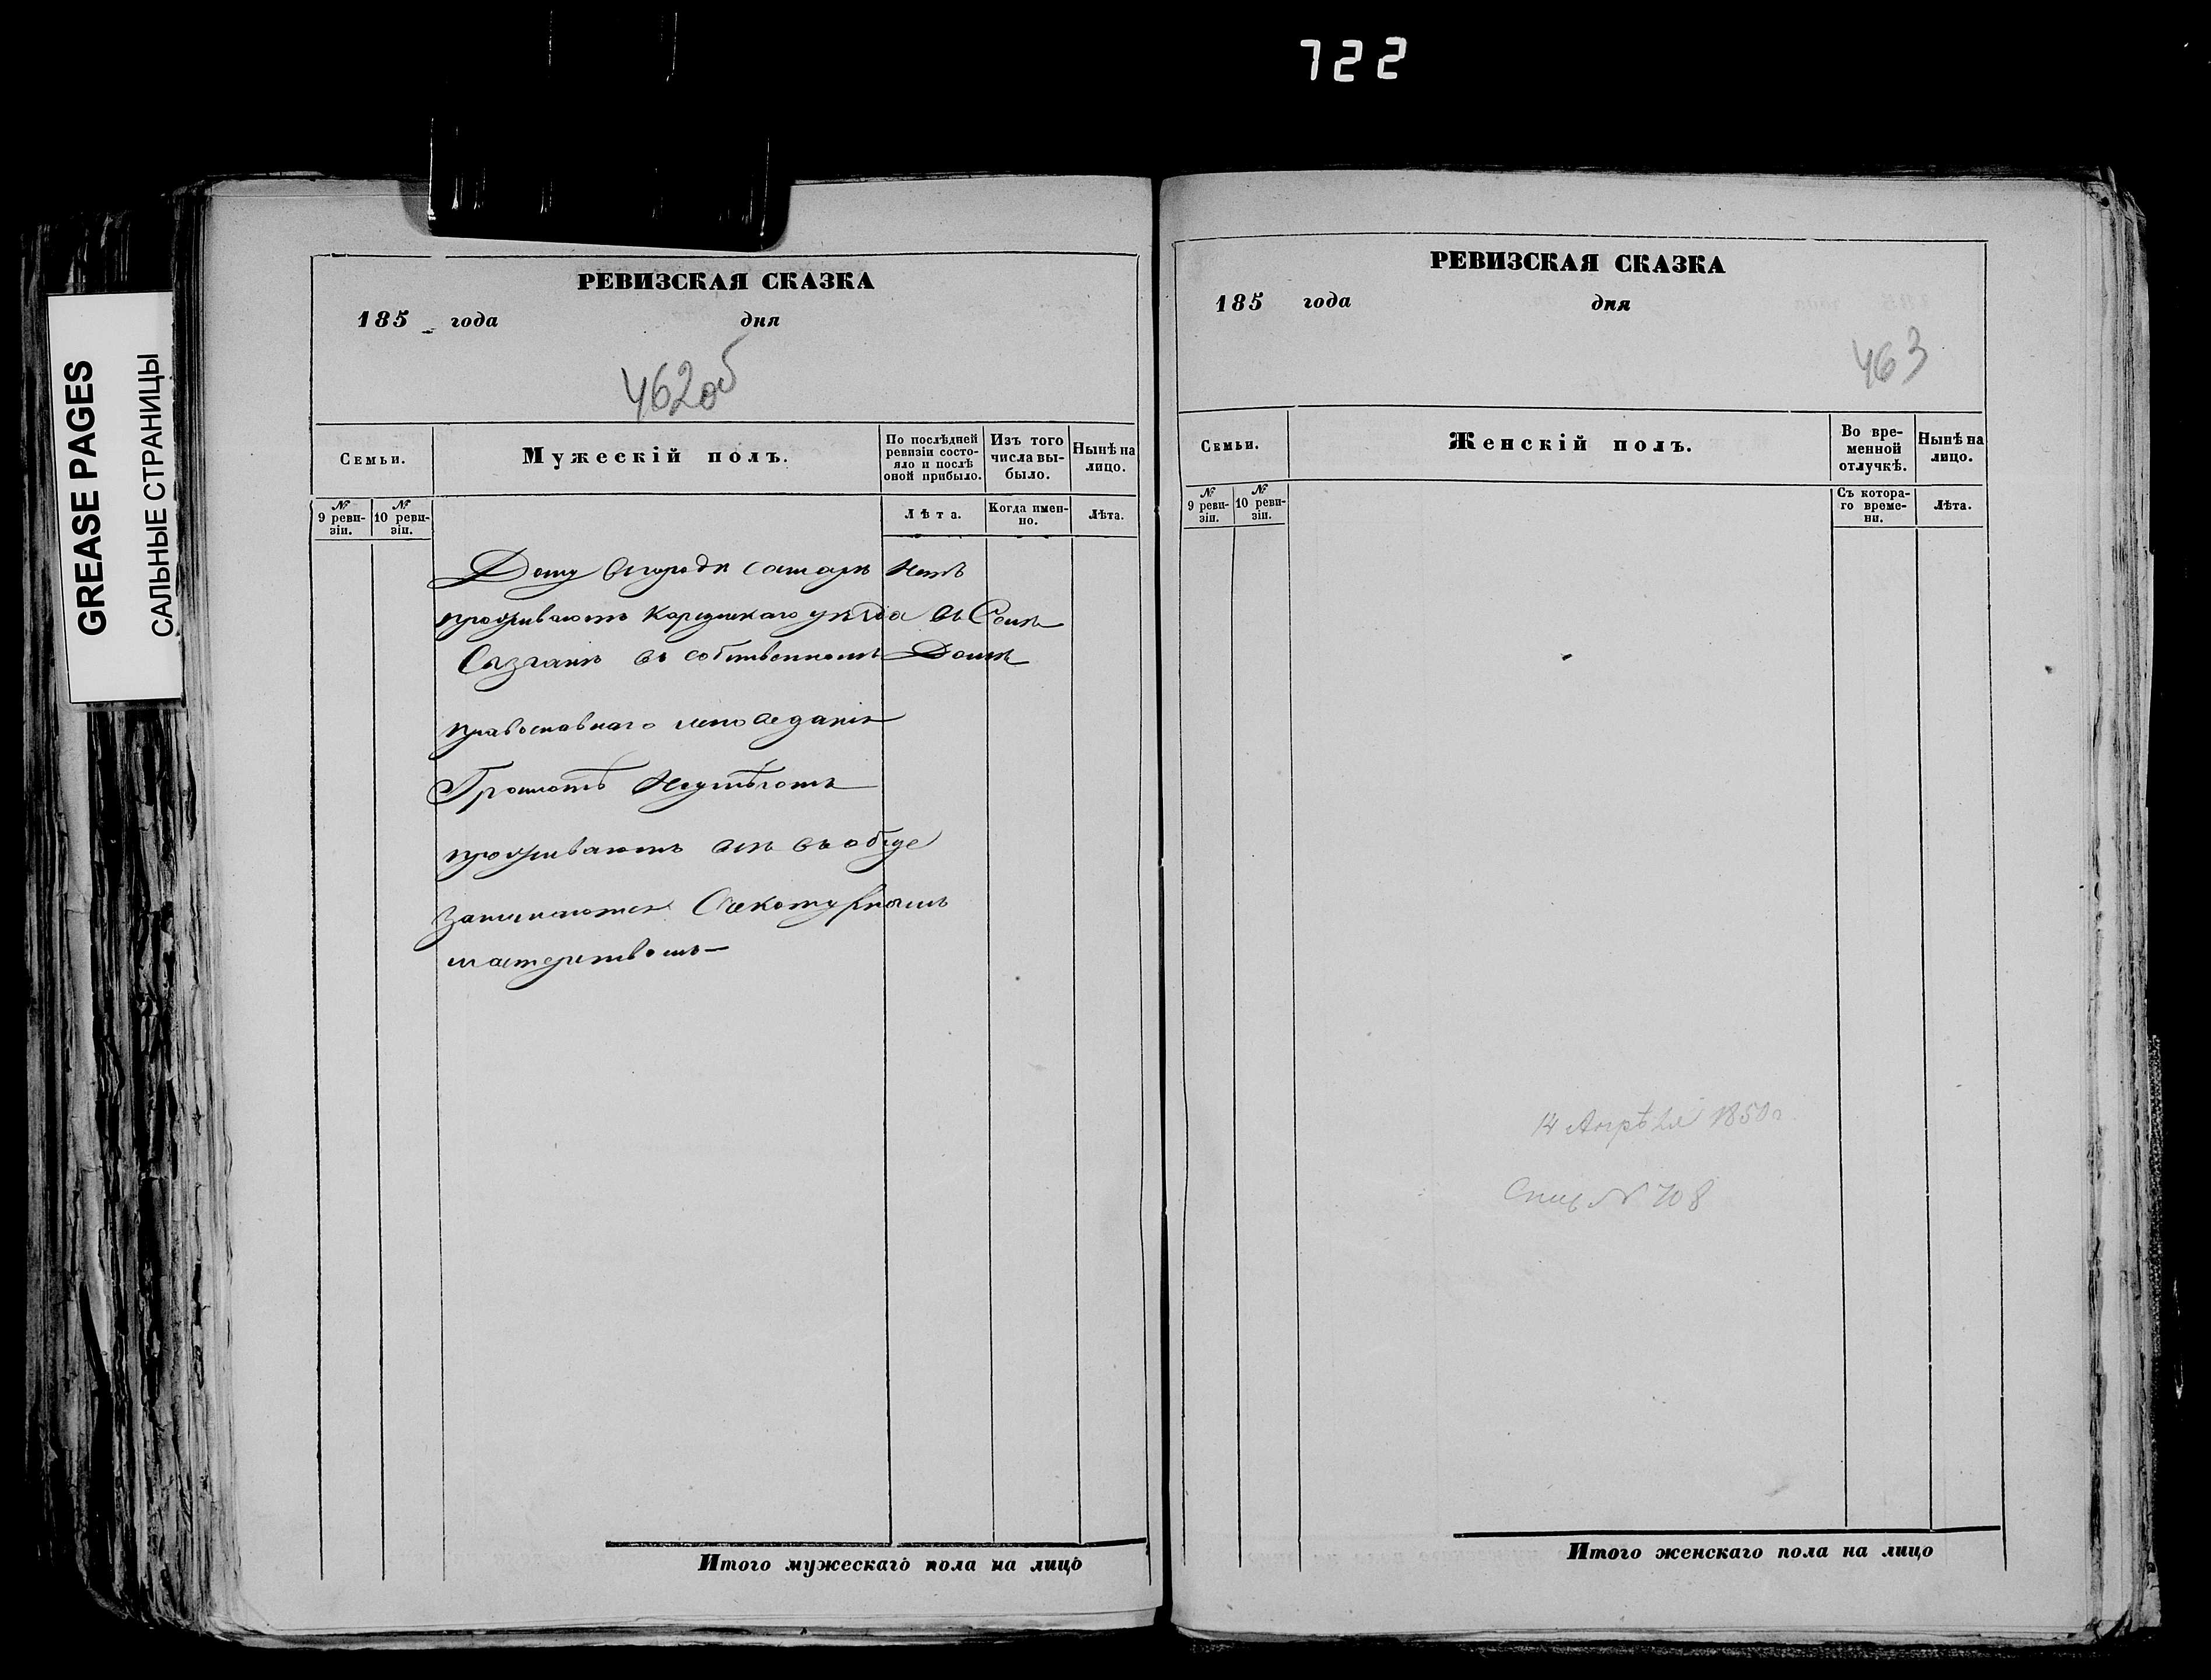 722
GREASE PAGES
САЛЬНЫЕ СТРАНИЦЫ
РЕВИЗСКАЯ СКАЗКА
185 года дня
462об
Семьи.
Мужескій полъ.
По послѣдней ревизіи состояло и послѣ оной прибыло.
Изъ того числа выбыло.
Нынѣ на лицо.
№ 9 ревизіи.
№ 10 ревизіи.
Лѣта.
Когда именно.
Лѣта.
Дому въ городѣ Самарѣ Нетъ
проживаютъ Карсунскаго уѣзда въ Селѣ
Сызганѣ въ собственномъ Домѣ
православнаго исповеданія
Грамотѣ Неумѣютъ
проживаютъ всѣ въ обще
занимаются Счекотурнымъ
мастерствомъ
РЕВИЗСКАЯ СКАЗКА
185 года дня
463
Семьи.
Женскій полъ.
Во временной отлучкѣ.
Нынѣ на лицо.
№ 9 ревизіи.
№ 10 ревизіи.
Съ котораго времени.
Лѣта.
14 Апрѣля 1850 г
№ 708
Итого мужескаго пола на лицо
Итого женскаго пола на лицо